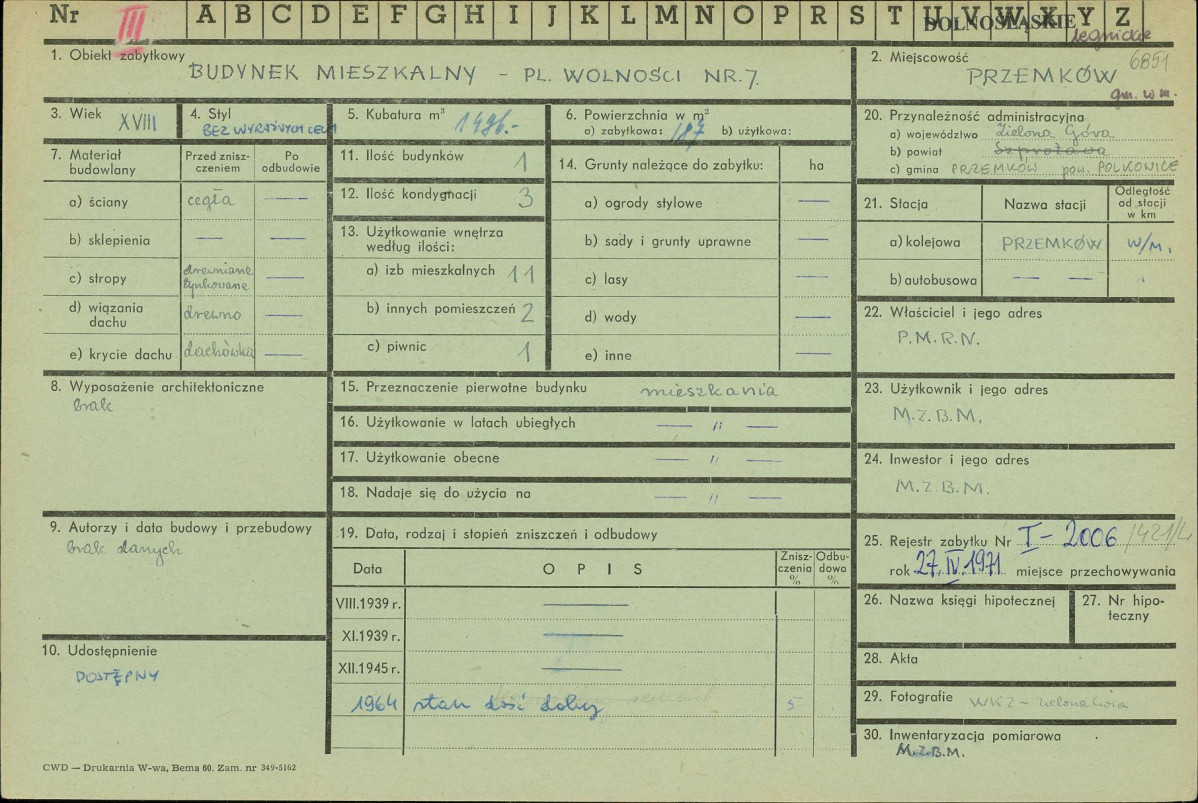 Nr III A B C D E F G H I J K L M N O P R S T U V W X Y Z
DOLNOŚLĄSKIE
legnickie
6851
1. Obiekt zabytkowy BUDYNEK MIESZKALNY – PL. WOLNOŚCI NR. 7.
2. Miejscowość
PRZEMKÓW
gm. w m.
3. Wiek XVIII
4. Styl
BEZ WYRAŹNYCH CECH
5. Kubatura m³ 1496.-
6. Powierzchnia w m²
a) zabytkowa: 187 b) użytkowa:
7. Materiał budowlany
Przed zniszczeniem
Po odbudowie
a) ściany cegła —
b) sklepienia — —
c) stropy drewniane tynkowane —
d) wiązania dachu drewno —
e) krycie dachu dachówka —
11. Ilość budynków 1
12. Ilość kondygnacji 3
13. Użytkowanie wnętrza
według ilości:
a) izb mieszkalnych 11
b) innych pomieszczeń 2
c) piwnic 1
14. Grunty należące do zabytku: ha
a) ogrody stylowe —
b) sady i grunty uprawne —
c) lasy —
d) wody —
e) inne —
20. Przynależność administracyjna
a) województwo Zielona Góra
b) powiat Szprotawa
c) gmina PRZEMKÓW pow. POLKOWICE
21. Stacja
Nazwa stacji
Odległość od stacji w km
a) kolejowa PRZEMKÓW w/m.
b) autobusowa — —
22. Właściciel i jego adres
P.M.R.N.
8. Wyposażenie architektoniczne
brak
15. Przeznaczenie pierwotne budynku mieszkania
16. Użytkowanie w latach ubiegłych — " —
17. Użytkowanie obecne — " —
18. Nadaje się do użycia na — " —
23. Użytkownik i jego adres
M.Z.B.M.
24. Inwestor i jego adres
M.Z.B.M.
9. Autorzy i data budowy i przebudowy
brak danych
19. Data, rodzaj i stopień zniszczeń i odbudowy
Data
OPIS
Zniszczenia %
Odbudowa %
VIII.1939 r. —
XI.1939 r. —
XII.1945 r. —
1964 stan dość dobry 5
remont
10. Udostępnienie
DOSTĘPNY
25. Rejestr zabytku Nr I – 2006 /421/L
rok 27.IV.1971 miejsce przechowywania
26. Nazwa księgi hipotecznej
27. Nr hipoteczny
28. Akta
29. Fotografie WKZ – Zielona Góra
30. Inwentaryzacja pomiarowa
M.Z.B.M.
CWD — Drukarnia W-wa, Bema 60. Zam. nr 349-5162